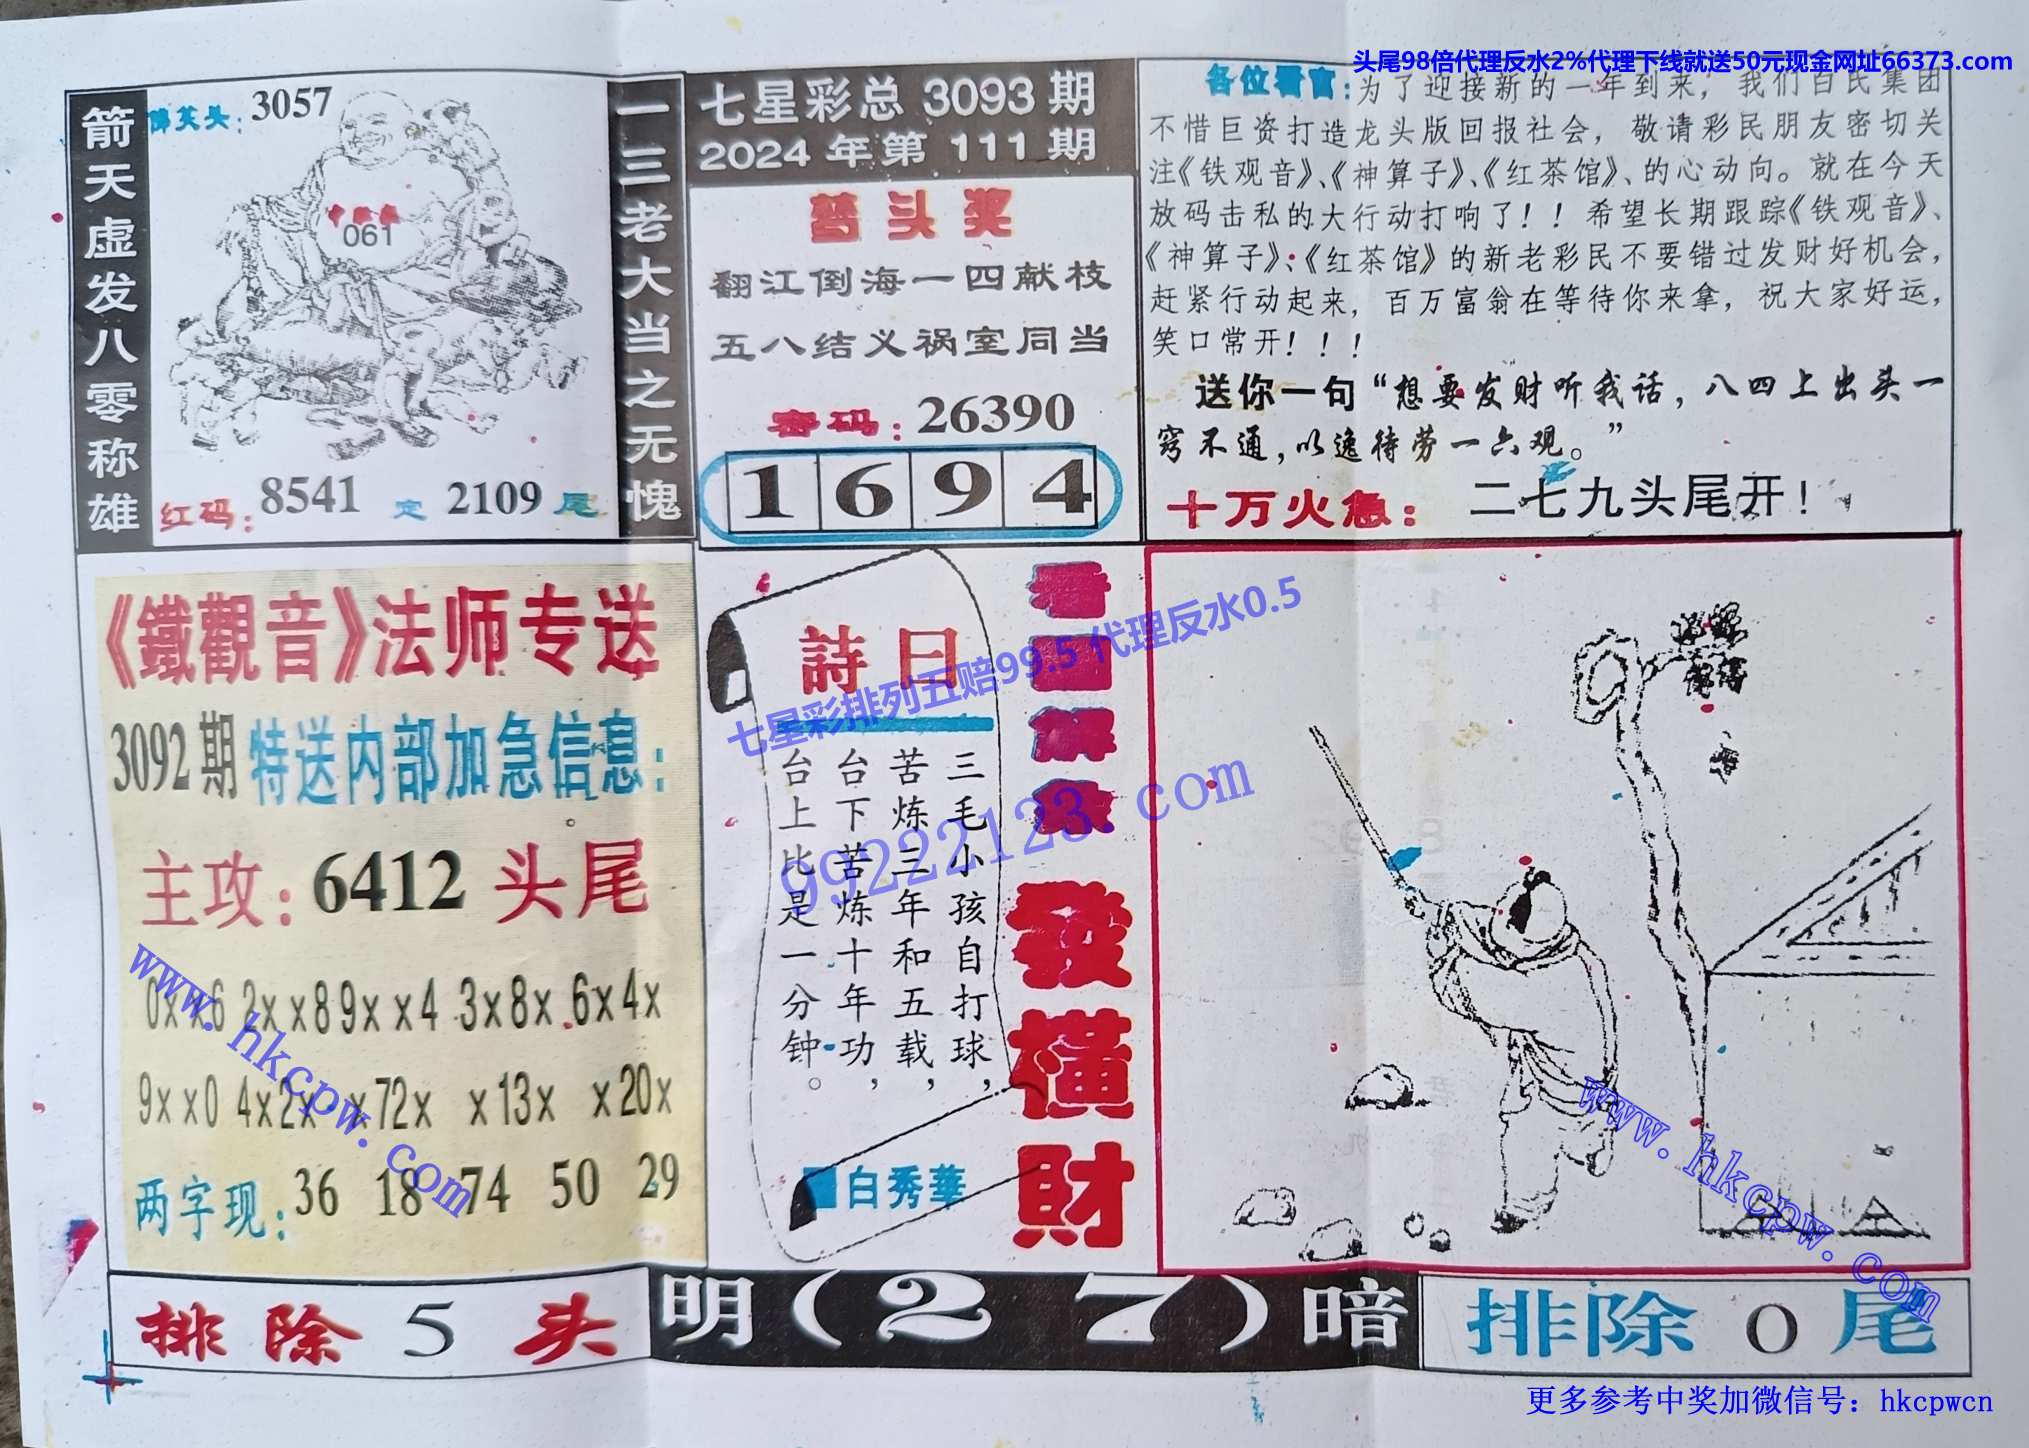 头尾98倍代理反水2%代理下线就送50元现金网址66373.com
箭天虚发八零称雄
3057
中肚数
061
红码：8541 定 2109 尾
一三老大当之无愧
七星彩总 3093 期
2024 年第 111 期
梦头奖
翻江倒海一四献枝
五八结义祸室同当
密码：26390
1 6 9 4
各位看官：为了迎接新的一年到来，我们百民集团
不惜巨资打造龙头版回报社会，敬请彩民朋友密切关
注《铁观音》、《神算子》、《红茶馆》、的心动向。就在今天
放码击私的大行动打响了！！希望长期跟踪《铁观音》、
《神算子》、《红茶馆》的新老彩民不要错过发财好机会，
赶紧行动起来，百万富翁在等待你来拿，祝大家好运，
笑口常开！！！
送你一句“想要发财听我话，八四上出头一
窍不通，以逸待劳一六观。”
十万火急：二七九头尾开！
《鐵觀音》法师专送
3092期 特送内部加急信息：
主攻：6412 头尾
0xx6 2xx8 9xx4 3x8x 6x4x
9xx0 4x2x x72x x13x x20x
两字现：36 18 74 50 29
詩曰
三毛小孩自打球，
苦炼三年和五载，
台下苦炼十年功，
台上比是一分钟。
白秀華
看图解象
發橫財
七星彩排列五赔99.5 代理反水0.5
99222123.com
www.hkcpw.com
www.hkcpw.com
排除 5 头
明（27）暗
排除 0 尾
更多参考中奖加微信号：hkcpwcn